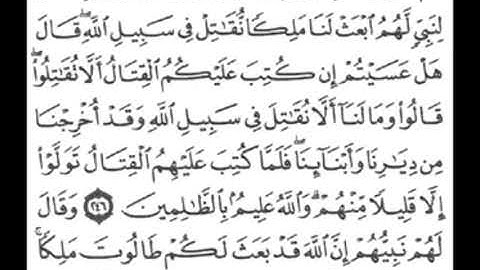 لِنَبِىٍّ لَّهُمُ ٱبۡعَثۡ لَنَا مَلِكٗا نُّقَٰتِلۡ فِي سَبِيلِ ٱللَّهِۖ قَالَ
هَلۡ عَسَيۡتُمۡ إِن كُتِبَ عَلَيۡكُمُ ٱلۡقِتَالُ أَلَّا تُقَٰتِلُواْۖ
قَالُواْ وَمَا لَنَآ أَلَّا نُقَٰتِلَ فِي سَبِيلِ ٱللَّهِ وَقَدۡ أُخۡرِجۡنَا
مِن دِيَٰرِنَا وَأَبۡنَآئِنَاۖ فَلَمَّا كُتِبَ عَلَيۡهِمُ ٱلۡقِتَالُ تَوَلَّوۡاْ
إِلَّا قَلِيلٗا مِّنۡهُمۡۚ وَٱللَّهُ عَلِيمُۢ بِٱلظَّٰلِمِينَ ٢٤٦ وَقَالَ
لَهُمۡ نَبِيُّهُمۡ إِنَّ ٱللَّهَ قَدۡ بَعَثَ لَكُمۡ طَالُوتَ مَلِكٗاۚ